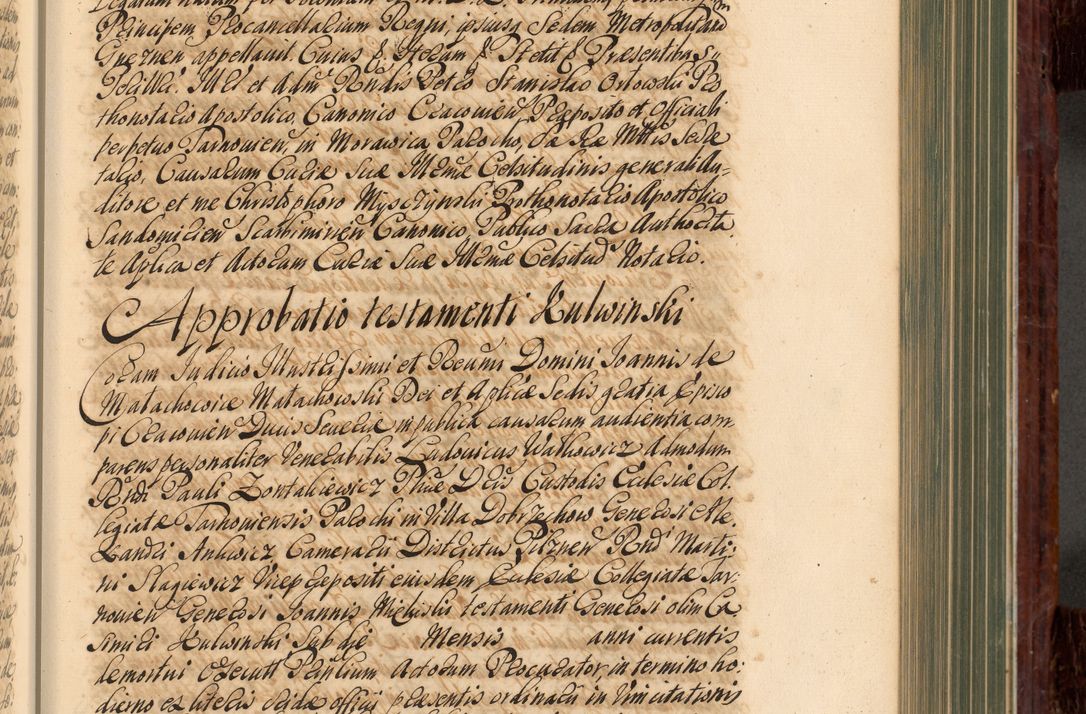 Principem Procancellarium Regni, ipsius Sedem Metropolitanam
Gneznen appellavit. Cuius & Stetit & Præsentibus
Perillri. Illri et Adm Rndis Petro Stanislao Orłowski Pro
thonotario Apostolico, Canonico Cracovien Præposito et Officiali
perpetuo Tarnovien, in Morawica Parocho, Sa Ræ Mttis Secre
tario, Causarum Curiæ Suæ Illmæ Celsitudinis generali Au-
ditore et me Christophoro Myszczynski Prothonotario Apostolico
Sandomirien Scarbimirien Canonico, Publico Sacra Authorita
te Aplica et Actorum Curiæ Suæ Illmæ Celsitud Notario.
Approbatio testamenti Kulwinski
Coram Iudicio Illustrissimi et Rev̄mi Domini Ioannis de
Małachowice Małachowski Dei et Aplicæ Sedis gratia Episco
pi Cracovien Ducis Severiæ in publica causarum audientia com
parens personaliter Venerabilis Ludovicus Watkowicz Admodum
Rndi Pauli Zontakiewicz Custodis Ecclesiæ Col
legiatæ Tarnoviensis Parochi in Villa Dobrzechow Generosi Ale
xandri Ankwicz Camerarii Districtus Pilznen Rnd Marti:
ni Slagiewicz Vicepræpositi eiusdem Ecclesiæ Collegiatæ Tar:
novien Generosi Ioannis Mielski testamenti Generosi olim Ca
simiri Kulwinski Sub die Mensis anni currentis
demortui Actorum Procurator, in termino ho:
dierno ex litteris officii præsentis ordinarii in vim citationis